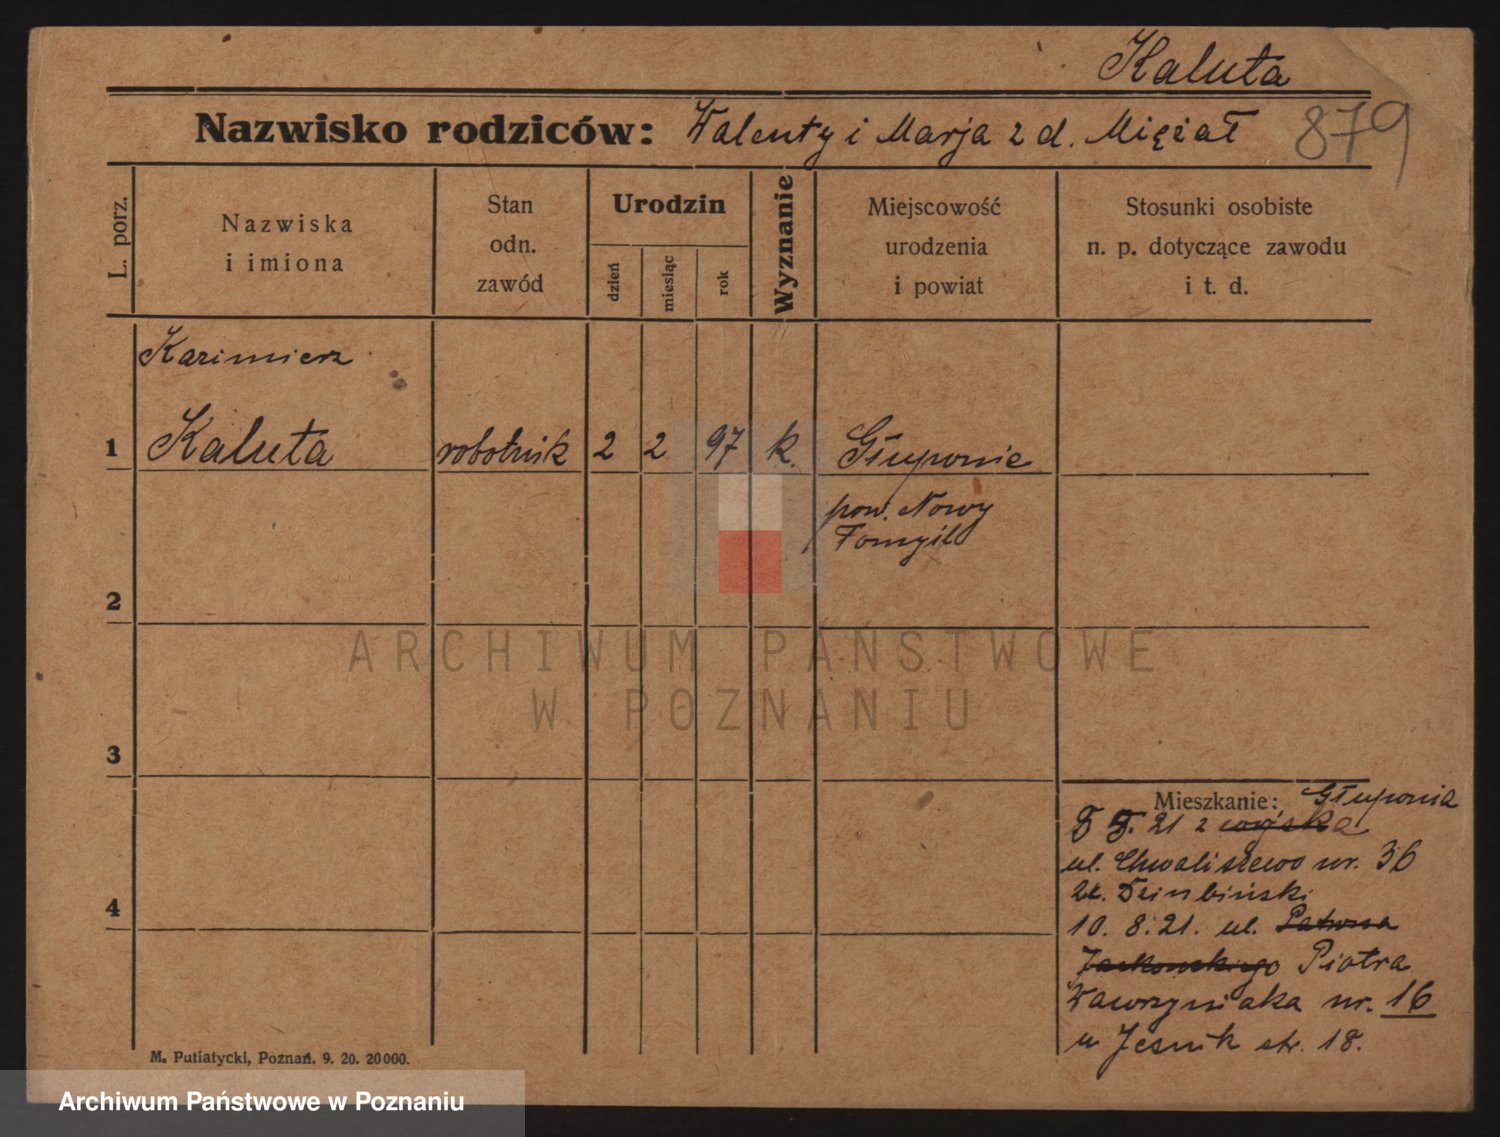 Kaluta
Nazwisko rodziców: Walenty i Marja z d. Miężał
879
L. porz.
Nazwiska
i imiona
Stan
odn.
zawód
Urodzin
dzień
miesiąc
rok
Wyznanie
Miejscowość
urodzenia
i powiat
Stosunki osobiste
n. p. dotyczące zawodu
i t. d.
Kazimierz
1 Kaluta robotnik 2 2 97 k. Głuponie
pow. Nowy
Tomyśl
2
3
4
ARCHIWUM PAŃSTWOWE
W POZNANIU
Mieszkanie: Głuponia
21 z wojska
ul. Chwaliszewo nr. 36
10. 8. 21. ul. Patrona
Jackowskiego Piotra
Wawrzyniaka nr. 16
u Jesnik str. 18.
M. Putiatycki, Poznań. 9. 20. 20000.
Archiwum Państwowe w Poznaniu